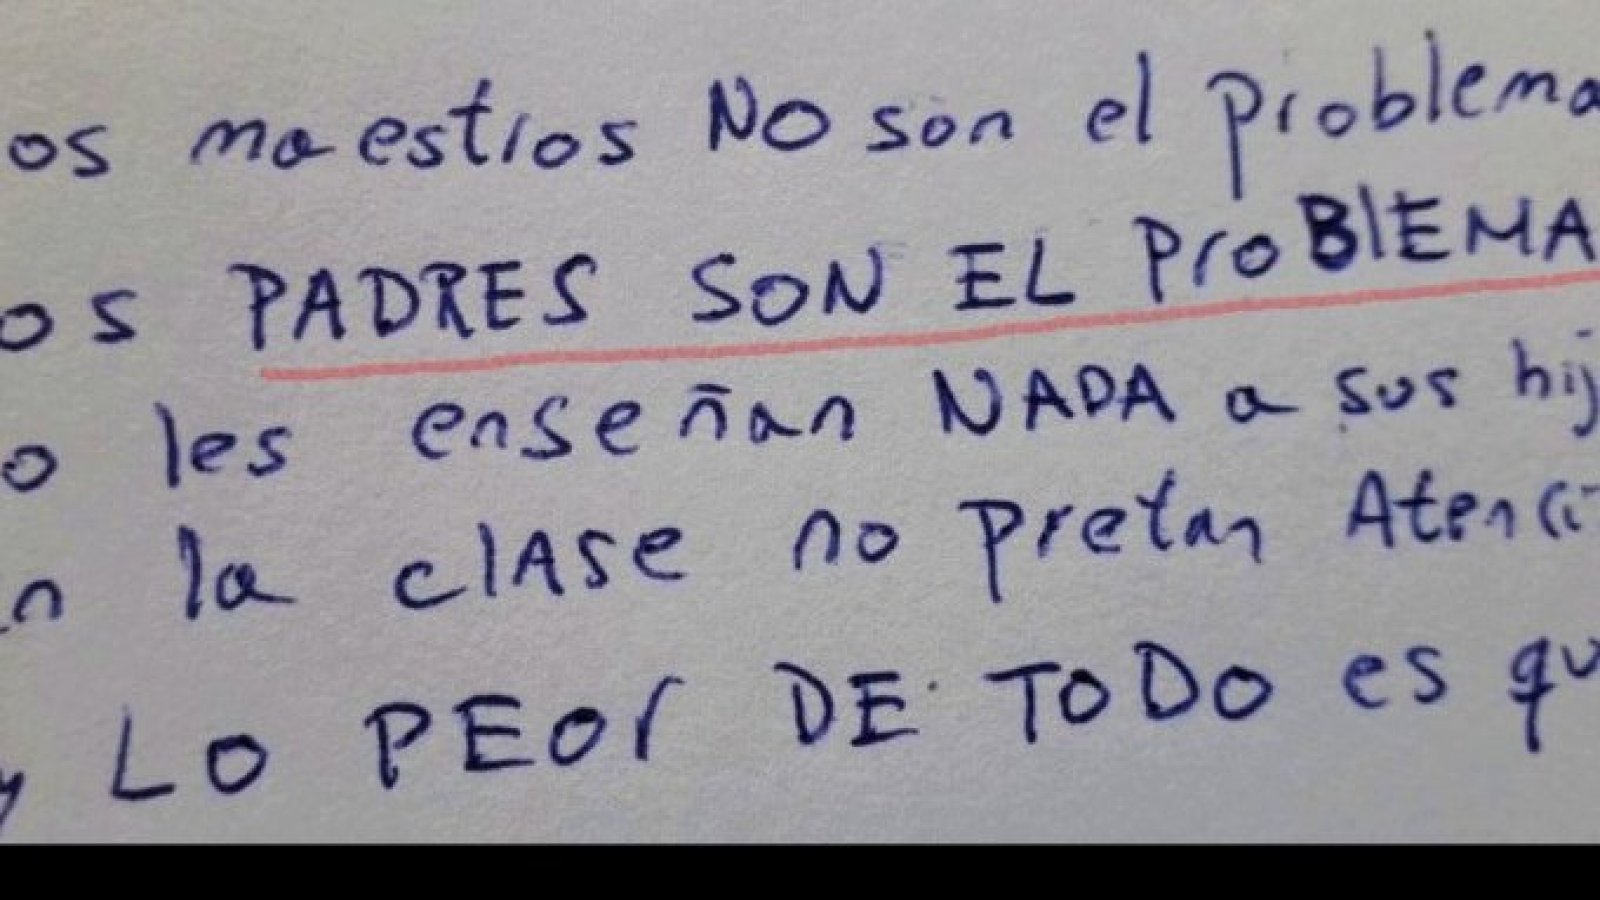 os maestros NO son el problema
os PADRES SON EL ProBlEMA
o les enseñan NADA a sus hij
n la clASe no pretan Atenci
y LO PEor DE TODO es qu